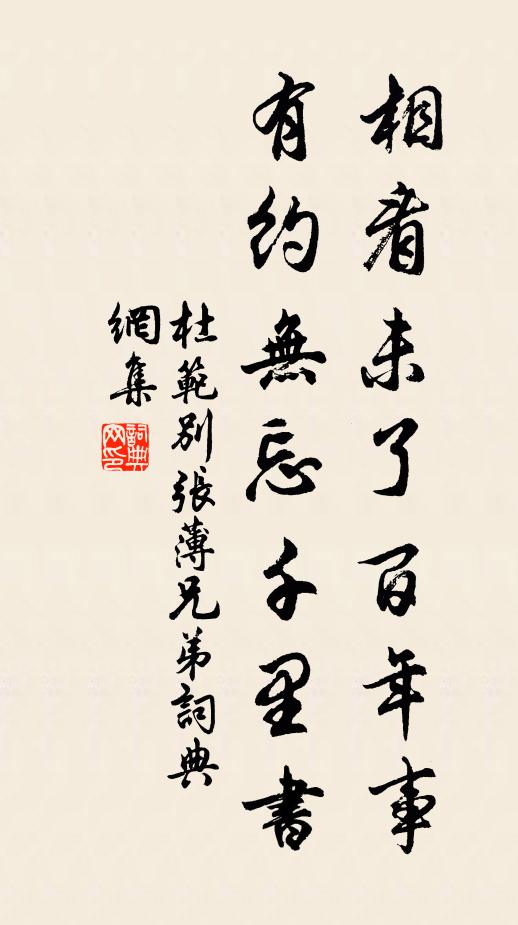 相看未了百年事
有約無忘千里書
杜範別張薄兄弟詞典
網集
詞典
网印